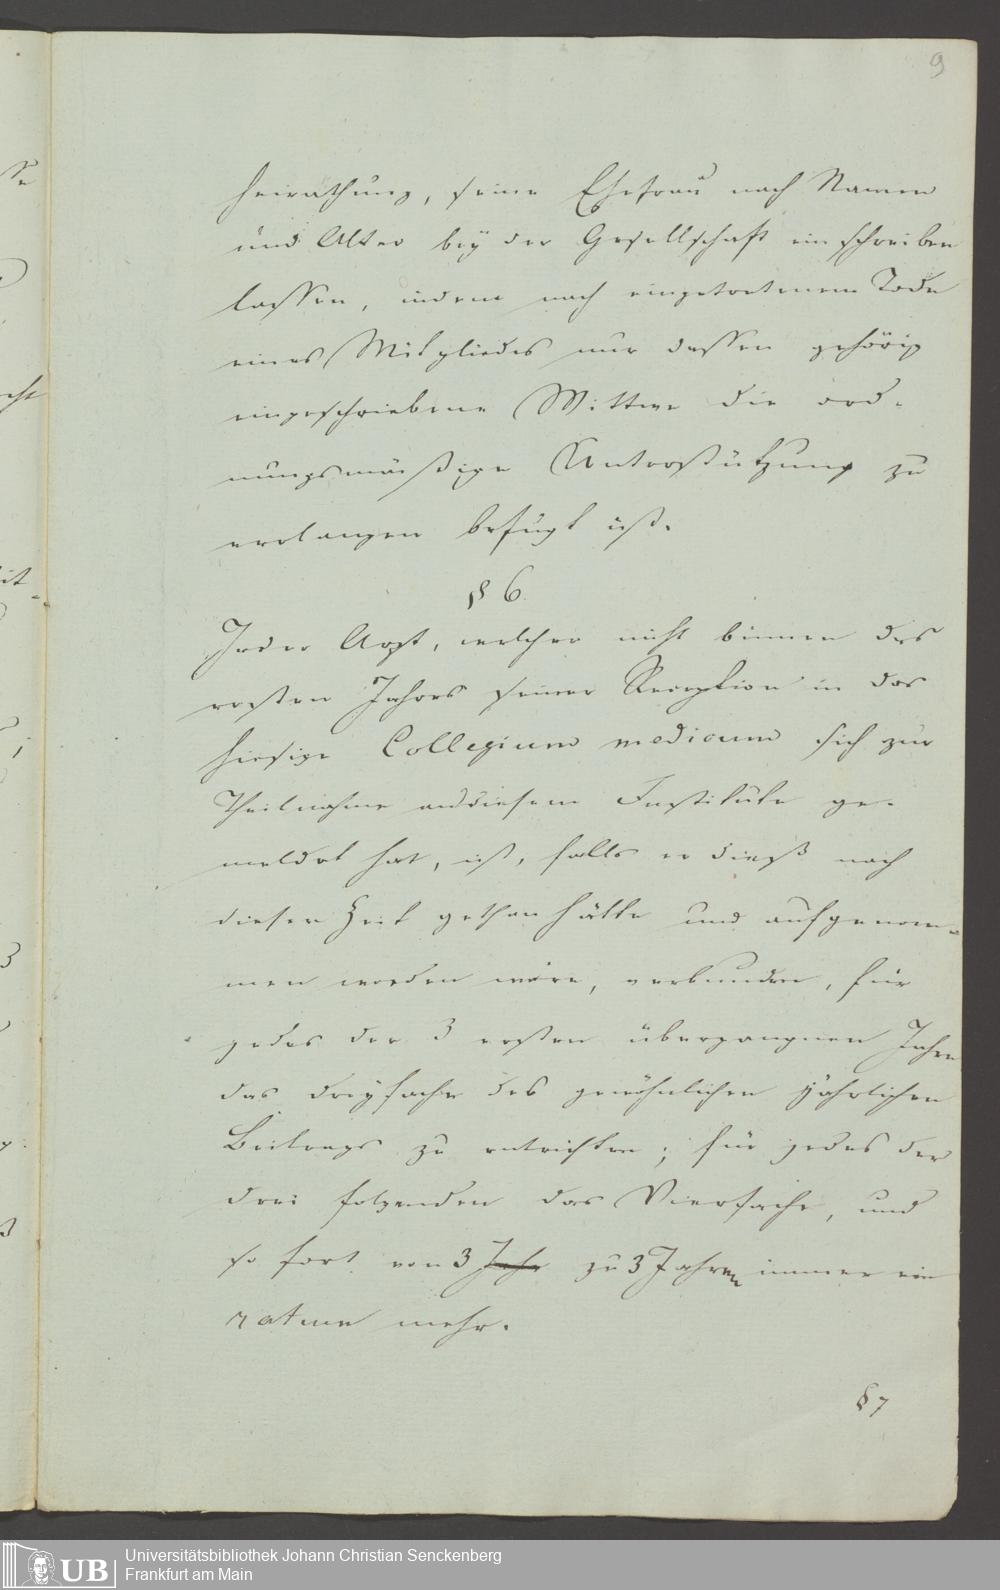 9
heirathung, seine Ehefrau nach Namen
und Alter bey der Gesellschaft ein schreiben
lassen, indem nach eingetretenem Tode
eines Mitgliedes nur dessen gehörig
eingeschriebene Wittwe die ord-
nungsmäßige Unterstützung zu
verlangen befugt ist.
§ 6
Jeder Arzt, welcher nicht binnen des
ersten Jahres seiner Reception in das
hiesige Collegium medicum sich zur
Theilnahme an diesem Institute ge-
meldet hat, ist, falls er dieß nach
dieser Zeit gethan hätte und aufgenom-
men worden wäre, verbunden, für
jedes der 3 ersten übergangnen Jahre
das dreyfache des gewöhnlichen jährlichen
Beitrags zu entrichten; für jedes der
drei folgenden das Vierfache, und
so fort von 3 Jahr zu 3 Jahren immer ein
ratum mehr.
§ 7
UB Universitätsbibliothek Johann Christian Senckenberg
Frankfurt am Main